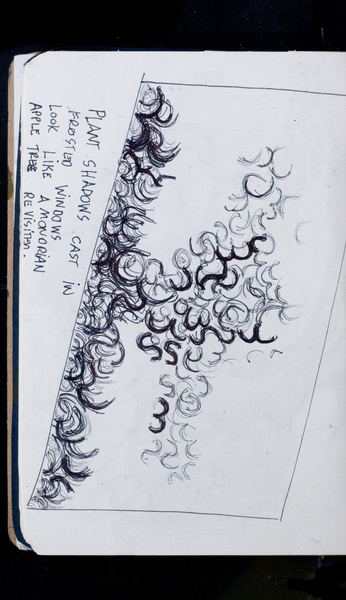 PLANT SHADOWS CAST IN
FROSTED WINDOWS
LOOK LIKE A MONDRIAN
APPLE TREE REVISITED.